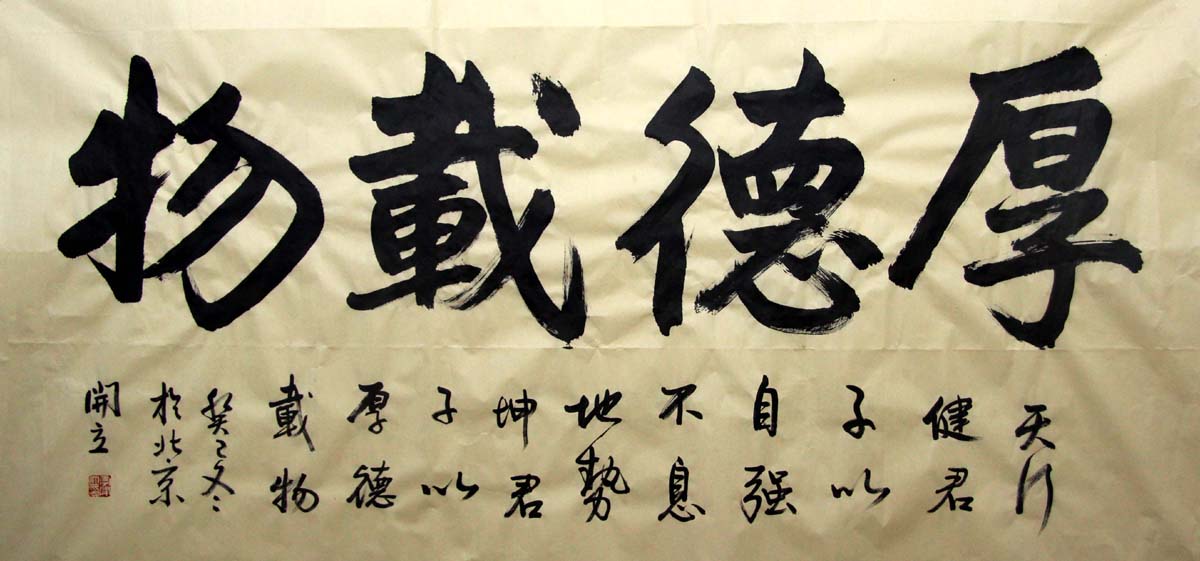 厚德載物
天行
健君
子以
自强
不息
地勢
坤君
子以
厚德
載物
癸巳冬
於北京
開立